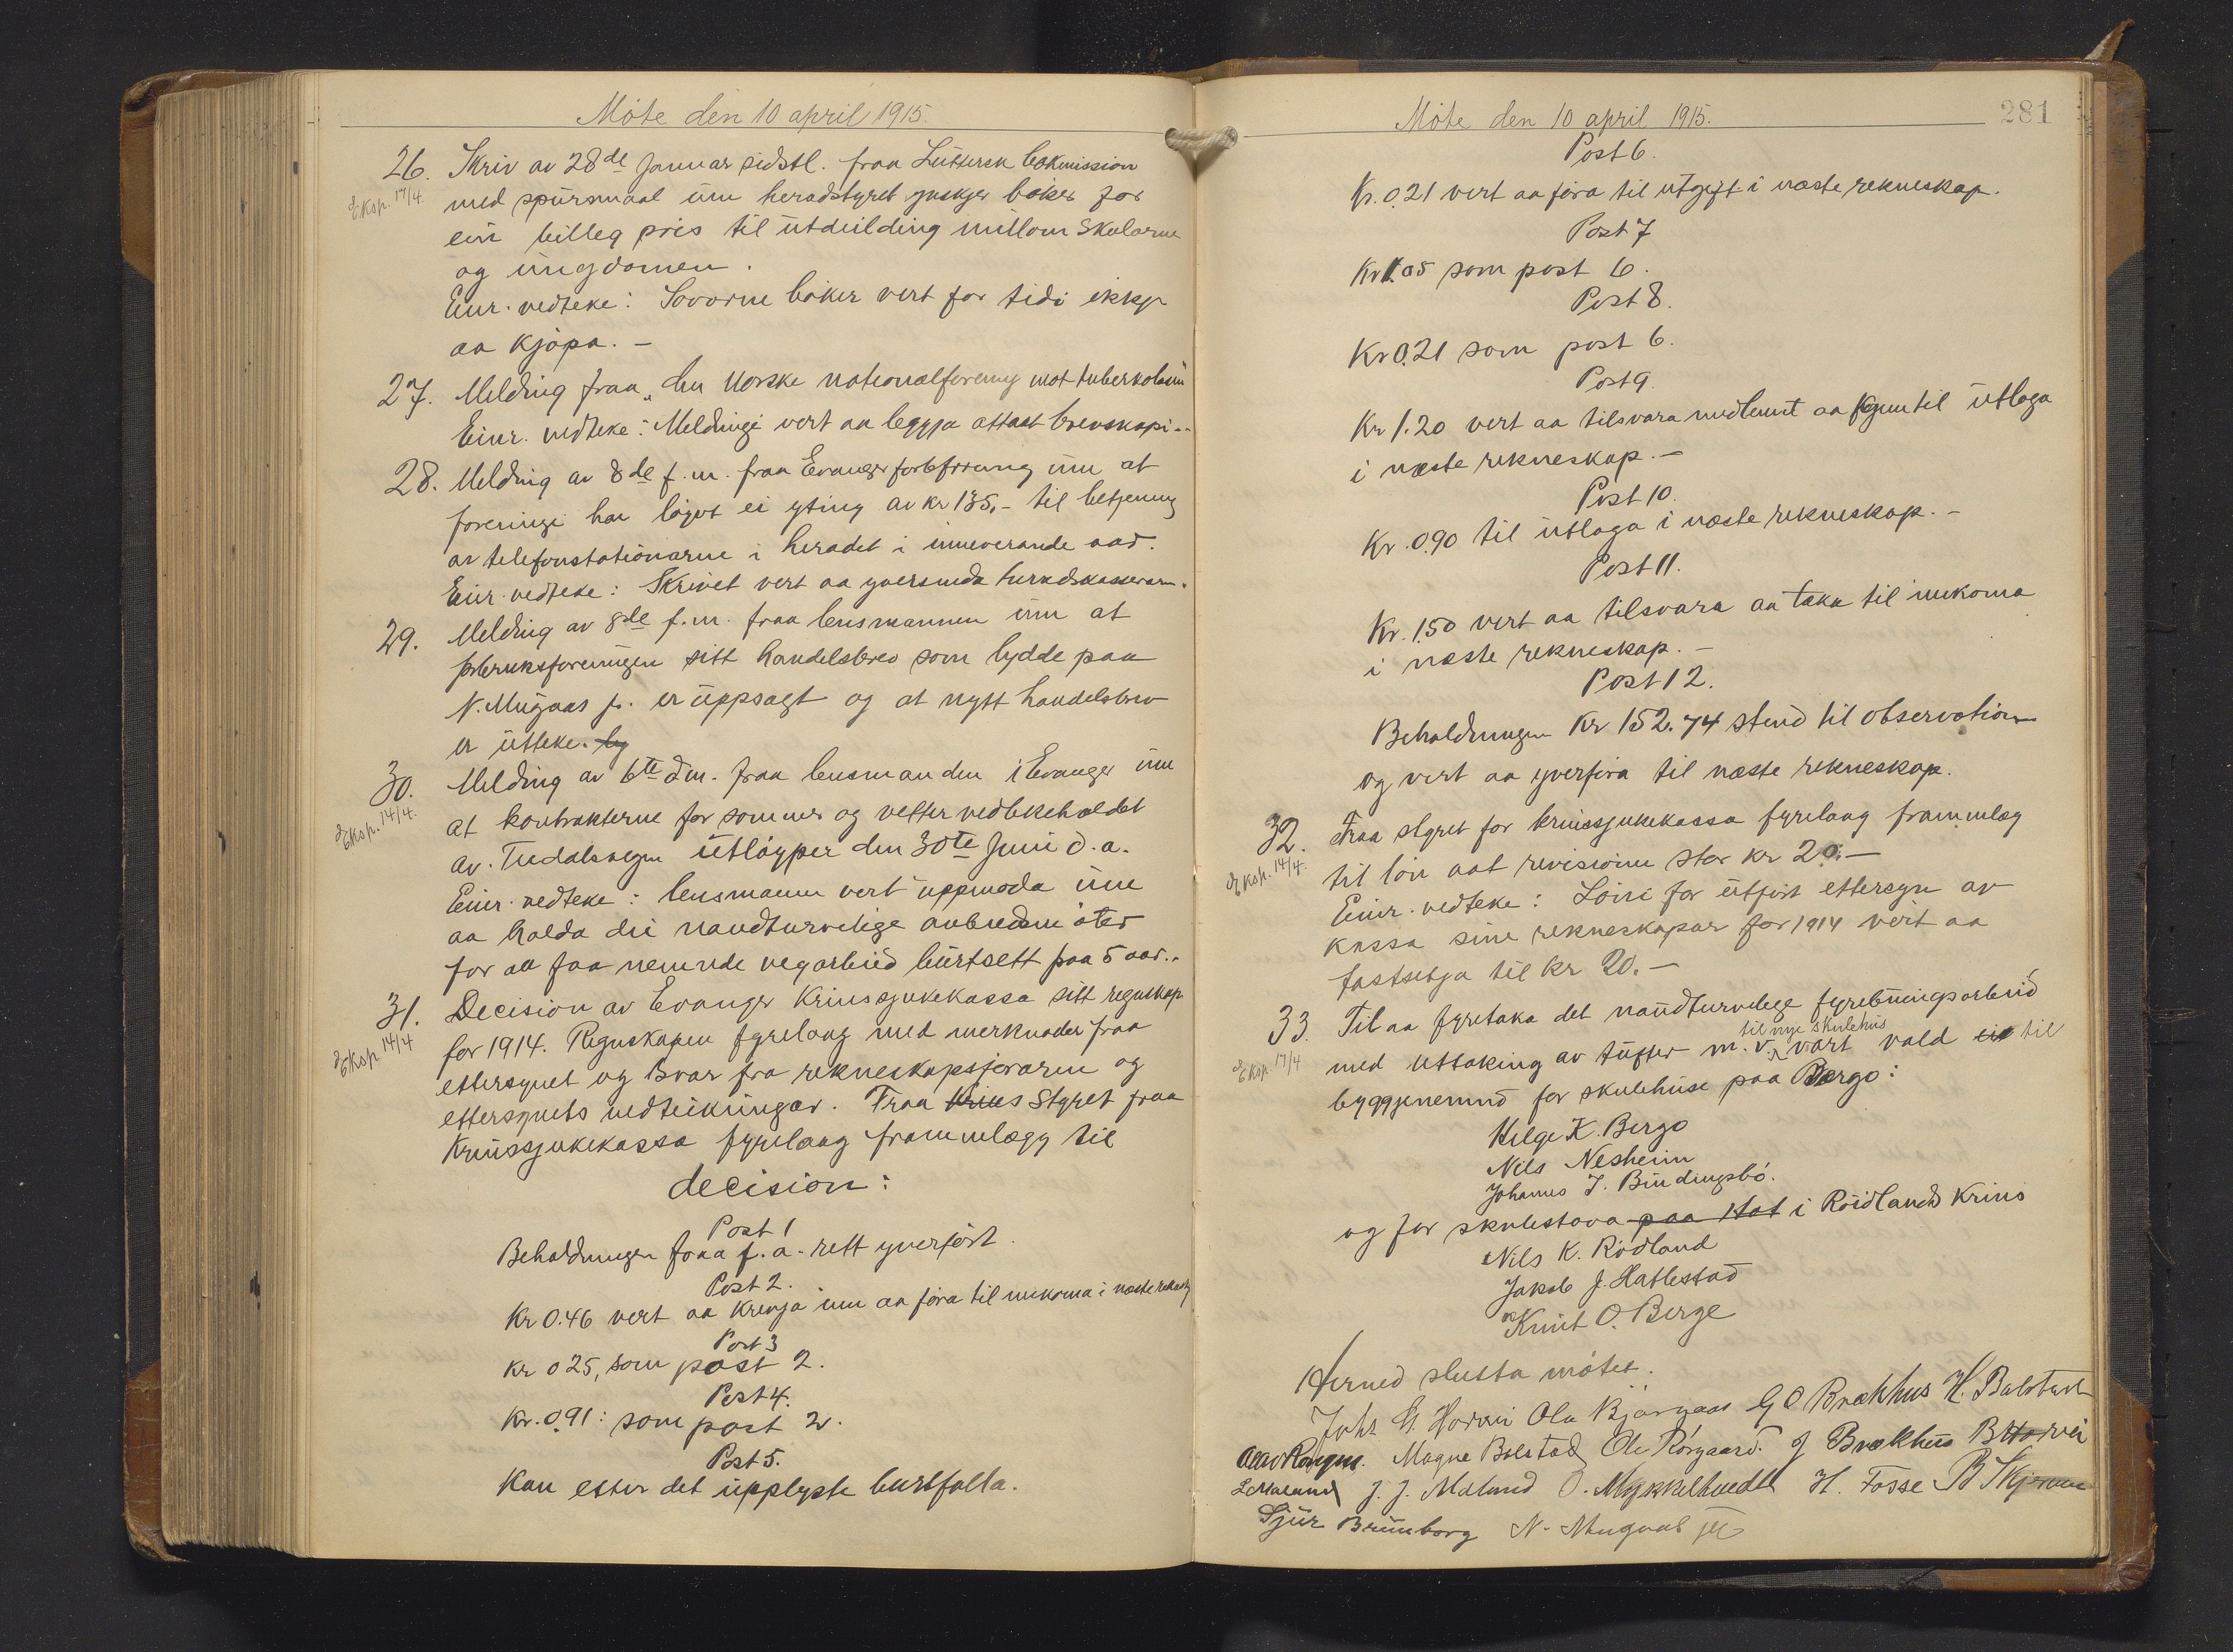 Möte den 10 april 1915.
26. Skriv av 28de Januar sidstl. fraa Luthersk bokmission
Eksp. 17/4.
med spursmaal um heradstyret ynskjer böker for
ein billeg pris til utdeilding millom Skularne
og ungdomen.
Einr. vedteke: Sovorne böker vert for tidi ikkje
aa kjöpa. —
27. Melding fraa „den Norske nationalforening mot tuberkolosen
Einr. vedteke: Meldingi vert aa leggja attaat brevskapi..
28. Melding av 8de f.m. fraa Evanger forbforening um at
foreningi har löyvt ei yting av kr 135,- til betjening
av telefonstationarne i heradet i inneverande aar.
Einr. vedteke: Skrivet vert aa yversenda heradskasseraren.
29. Melding av 8de f.m. fraa lensmannen um at
forbruksforeningen sitt handelsbrev som lydde paa
N. Mugaas jr. er uppsagt og at nytt handelsbrev
er utteke. og
30. Melding av 6te dm. fraa lensmanden i Evanger um
Eksp. 14/4.
at kontrakterne for sommer og vetter vedlikehaldet
av. Teedalsvegen utlöyper den 30te Juni d.a.
Einr. vedteke: lensmannen vert uppmoda um
aa halda dei naudturvelige anbudsmöter
for aa faa nemnde vegarbeid burtsett paa 5 aar..
31. Decision av Evanger Krinssjukekassa sitt regnskap
Eksp 14/4
for 1914. Regnskapen fyrelaag med merknader fraa
ettersynet og Svar fra rekneskapsförarin og
ettersynets vedteikningar. Fraa Krins Styret fraa
Krinssjukekassa fyrelaag frammlegg til
decision:
Post 1
Behaldningen fraa f.a. rett yverfört.
Post 2.
Kr 0.46 vert aa krevja inn aa föra til innkoma i næste reknesk
Post 3
Kr 0 25, som post 2.
Post 4.
Kr. 0.91: som post 2.
Post 5.
Kan etter det upplyste burtfalla.
Möte den 10 april 1915.
281
Post 6.
Kr. 0.21 vert aa föra til utgift i næste rekneskap.
Post 7
Kr 1.05 som post 6.
Post 8.
Kr 0.21 som post 6.
Post 9.
Kr 1.20 vert aa tilsvara aa til utlaga
i næste rekneskap. —
Post 10.
Kr. 0.90 til utlaga i næste rekneskap. —
Post 11.
Kr. 1.50 vert aa tilsvara aa taka til innkoma
i næste rekneskap. —
Post 12.
Behaldningen Kr 152.74 stend til observation
og vert aa yverföra til næste rekneskap.
32. Fraa styret for krinssjukekassa fyrelaag frammlegg
Eksp. 14/4.
til lön aat revisionen stor kr 20.—
Einr. vedteke: Löni for utfört ettersyn av
kassa sine rekneskapar for 1914 vert aa
fastsetja til kr 20. —
33. Til aa fyretaka det naudturvelege fyrebuingsarbeid
Eksp. 17/4
med uttaking av tufter m.v. til nye skulehus vart vald ei til
byggjenemnd for skulehuse paa Bergo:
Helge K. Bergo
Nils Nesheim
Johannes J. Bindingsbö.
og for skulestova paa Hat i Rödlands Krins
Nils K. Rödland
Jakob J. Hatlestad
Knut O. Berge
Hermed slutta mötet.
Johs M. Horvei Ola Bjørgaas G O Brækhus H. Bolstad
Olav Rongen. Magne Bolstad Ole Rörgaard. J Brækhus B Horvei
L Mæland J. J. Mæland O. Mykkeltvedt H. Fosse B Skjerven
Sjur Brunborg N. Mugaas jr